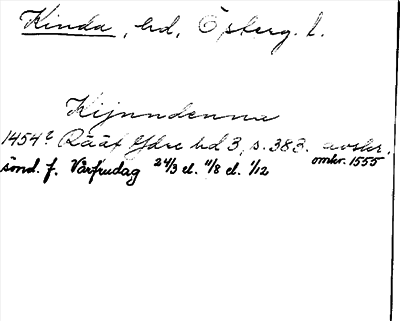 Kinda, hd, Österg. l.
Kijnndenna
1454? Rääf Ydre hd 3, s. 383. avskr.
omkr. 1555
sönd. f. Vårfrudag 24/3 el. 11/8 el. 1/12